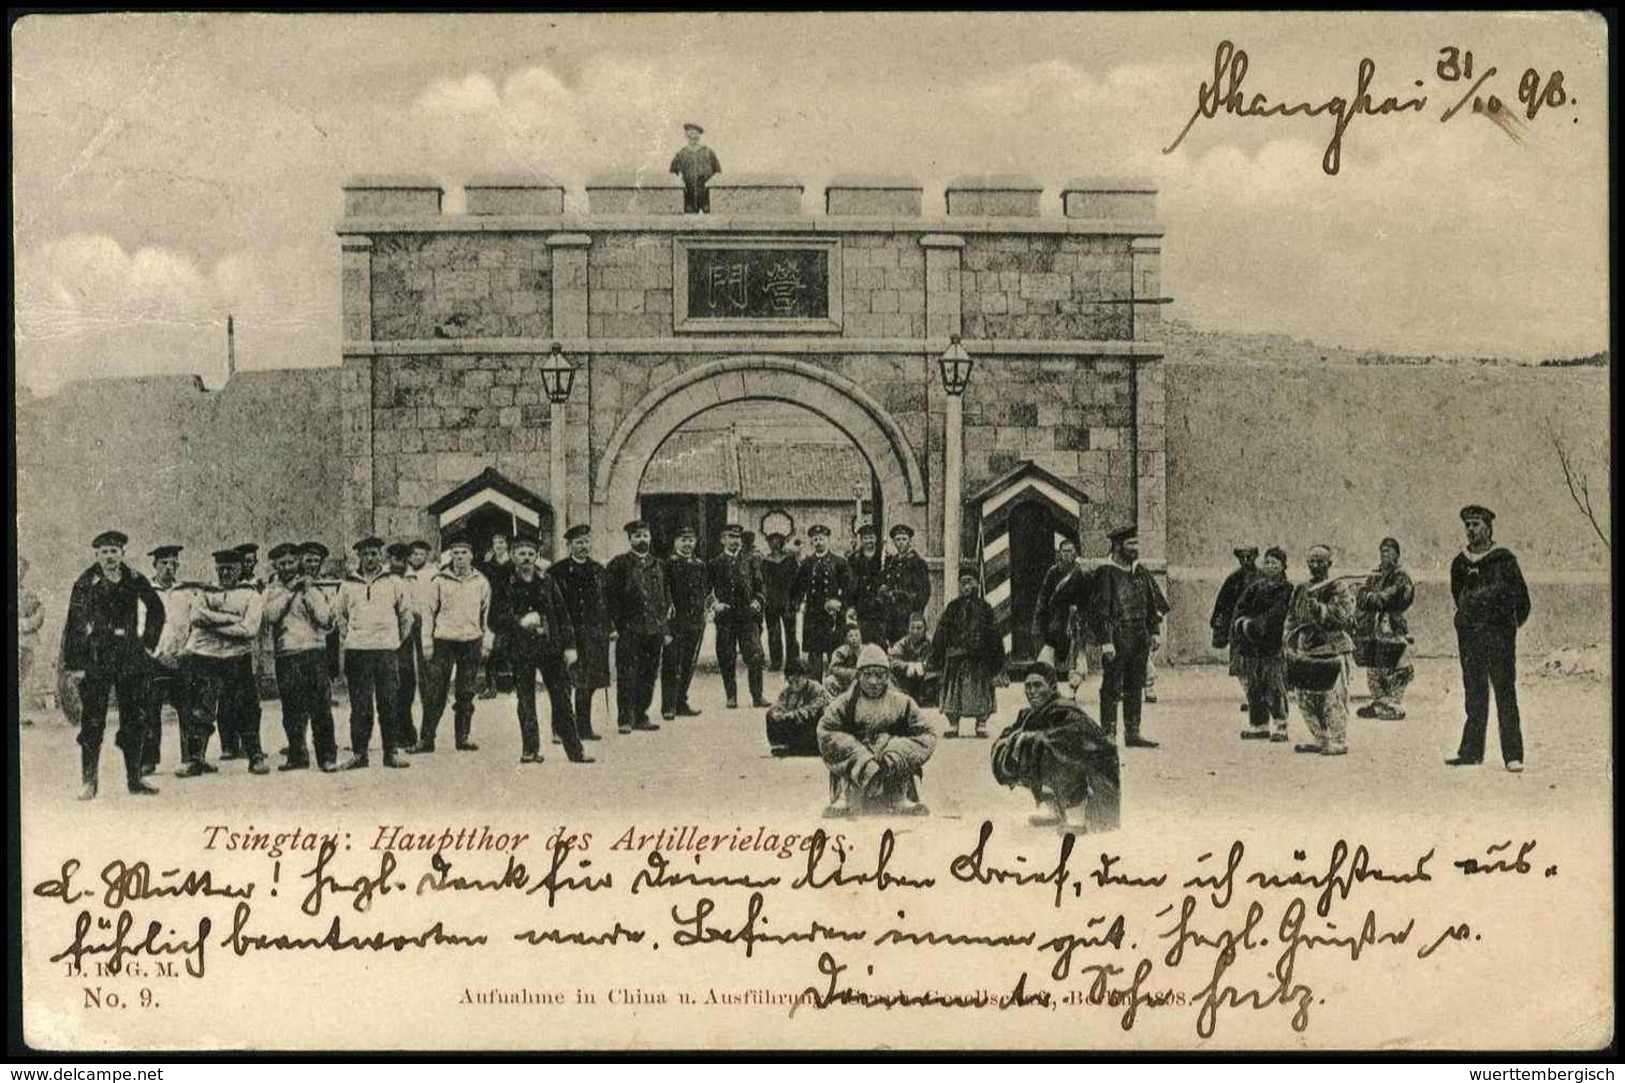 Shanghai 31/10 98.
門 營
Tsingtau: Hauptthor des Artillerielagers.
L. Mutter! Herzl. Dank für Deinen lieben Brief, den ich nächstens aus-
führlich beantworten werde. Befinden immer gut. Herzl. Grüße v.
Deinem tr. Sohn Fritz.
D. R. G. M.
No. 9.
Aufnahme in China u. Ausführung: Graph. Gesellschaft, Berlin 1898.
www.delcampe.net
wuerttembergisch